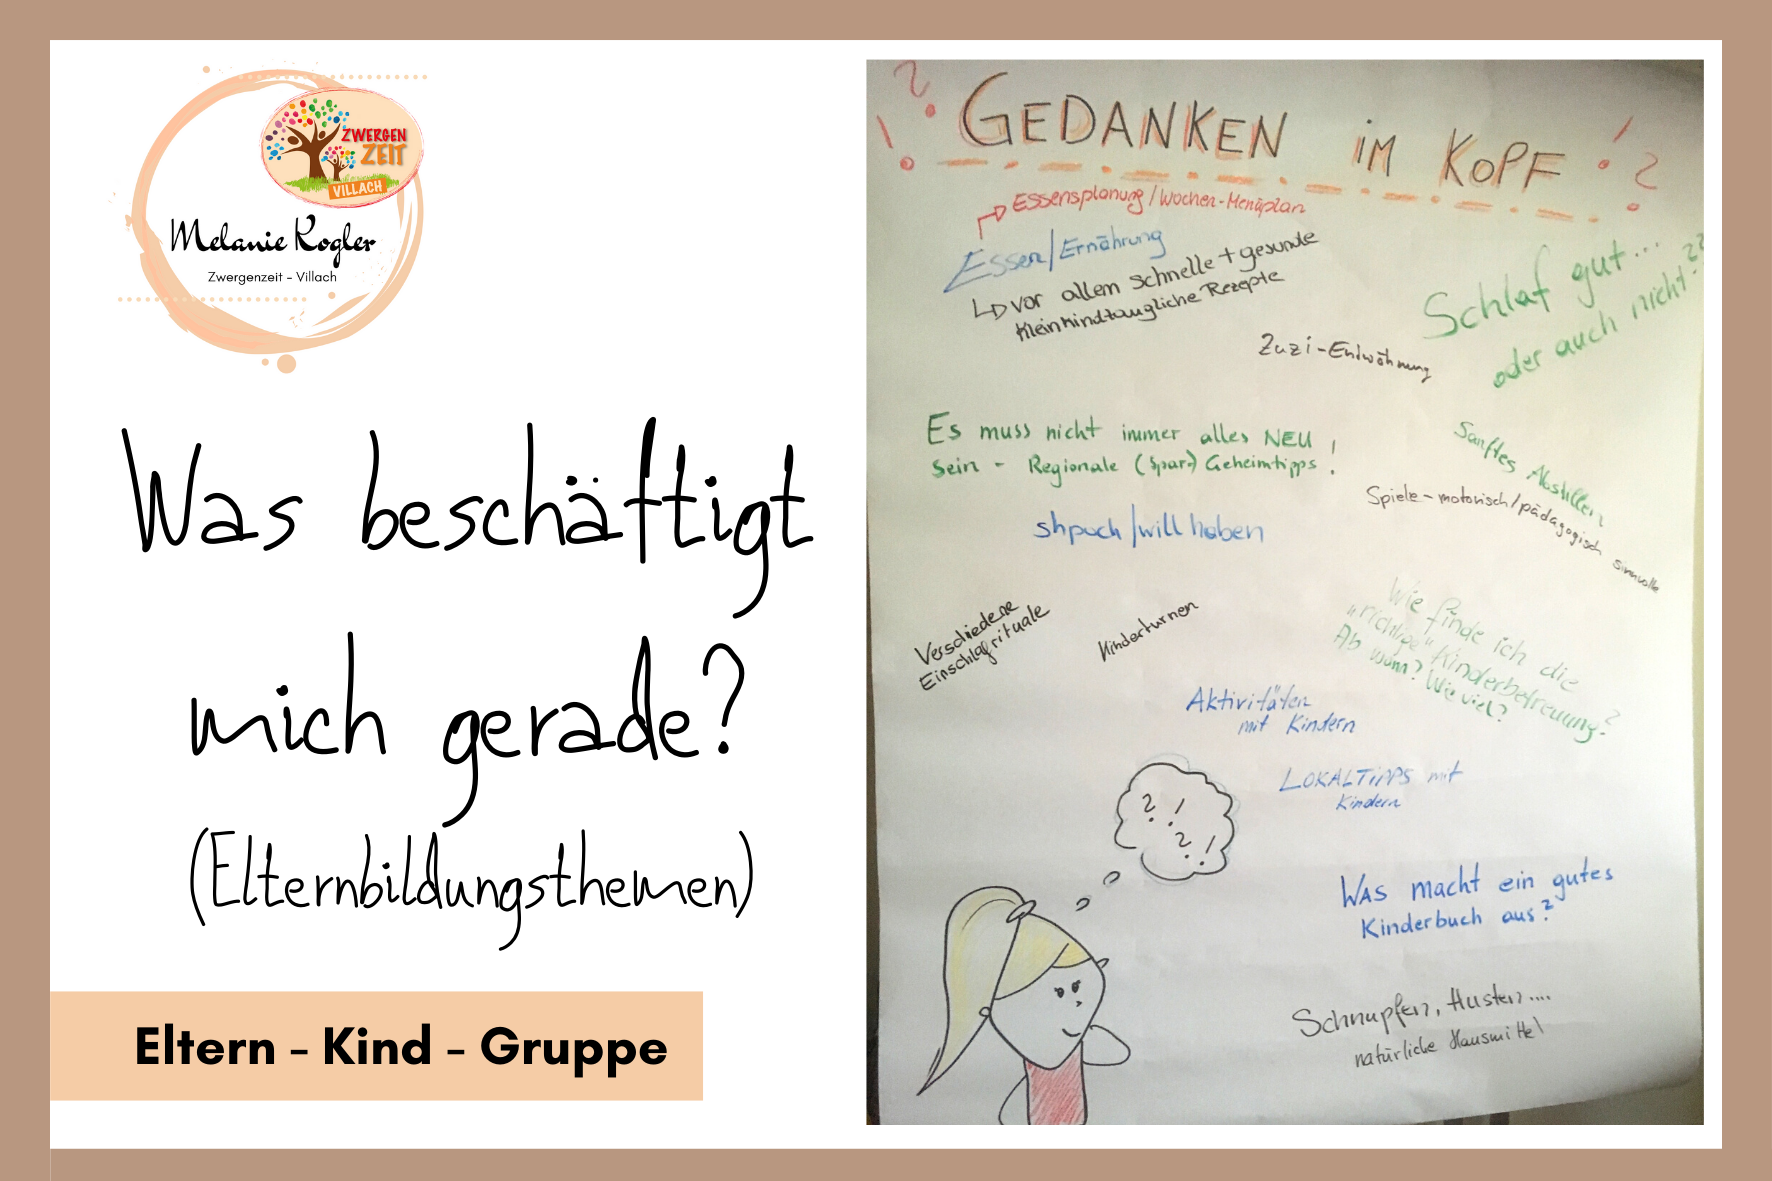 ZWERGEN
ZEIT
VILLACH
Melanie Kogler
Zwergenzeit - Villach
Was beschäftigt
mich gerade?
(Elternbildungsthemen)
Eltern - Kind - Gruppe
? ! GEDANKEN IM KOPF ! ?
Essensplanung / Wochen-Menüplan
Essen/Ernährung
vor allem schnelle + gesunde
kleinkindtaugliche Rezepte
Schlaf gut...
oder auch nicht??
Zuzi-Entwöhnung
Es muss nicht immer alles NEU
sein - Regionale (Spar-) Geheimtipps!
Sanftes Abstillen
Spiele - motorisch/pädagogisch sinnvolle
shpock/will haben
Verschiedene
Einschlafrituale
Kinderturnen
Wie finde ich die
"richtige" Kinderbetreuung?
Ab wann? Wie viel?
Aktivitäten
mit Kindern
LOKALTIPPS mit
Kindern
? !
? !
Was macht ein gutes
Kinderbuch aus?
Schnupfen, Husten....
natürliche Hausmittel